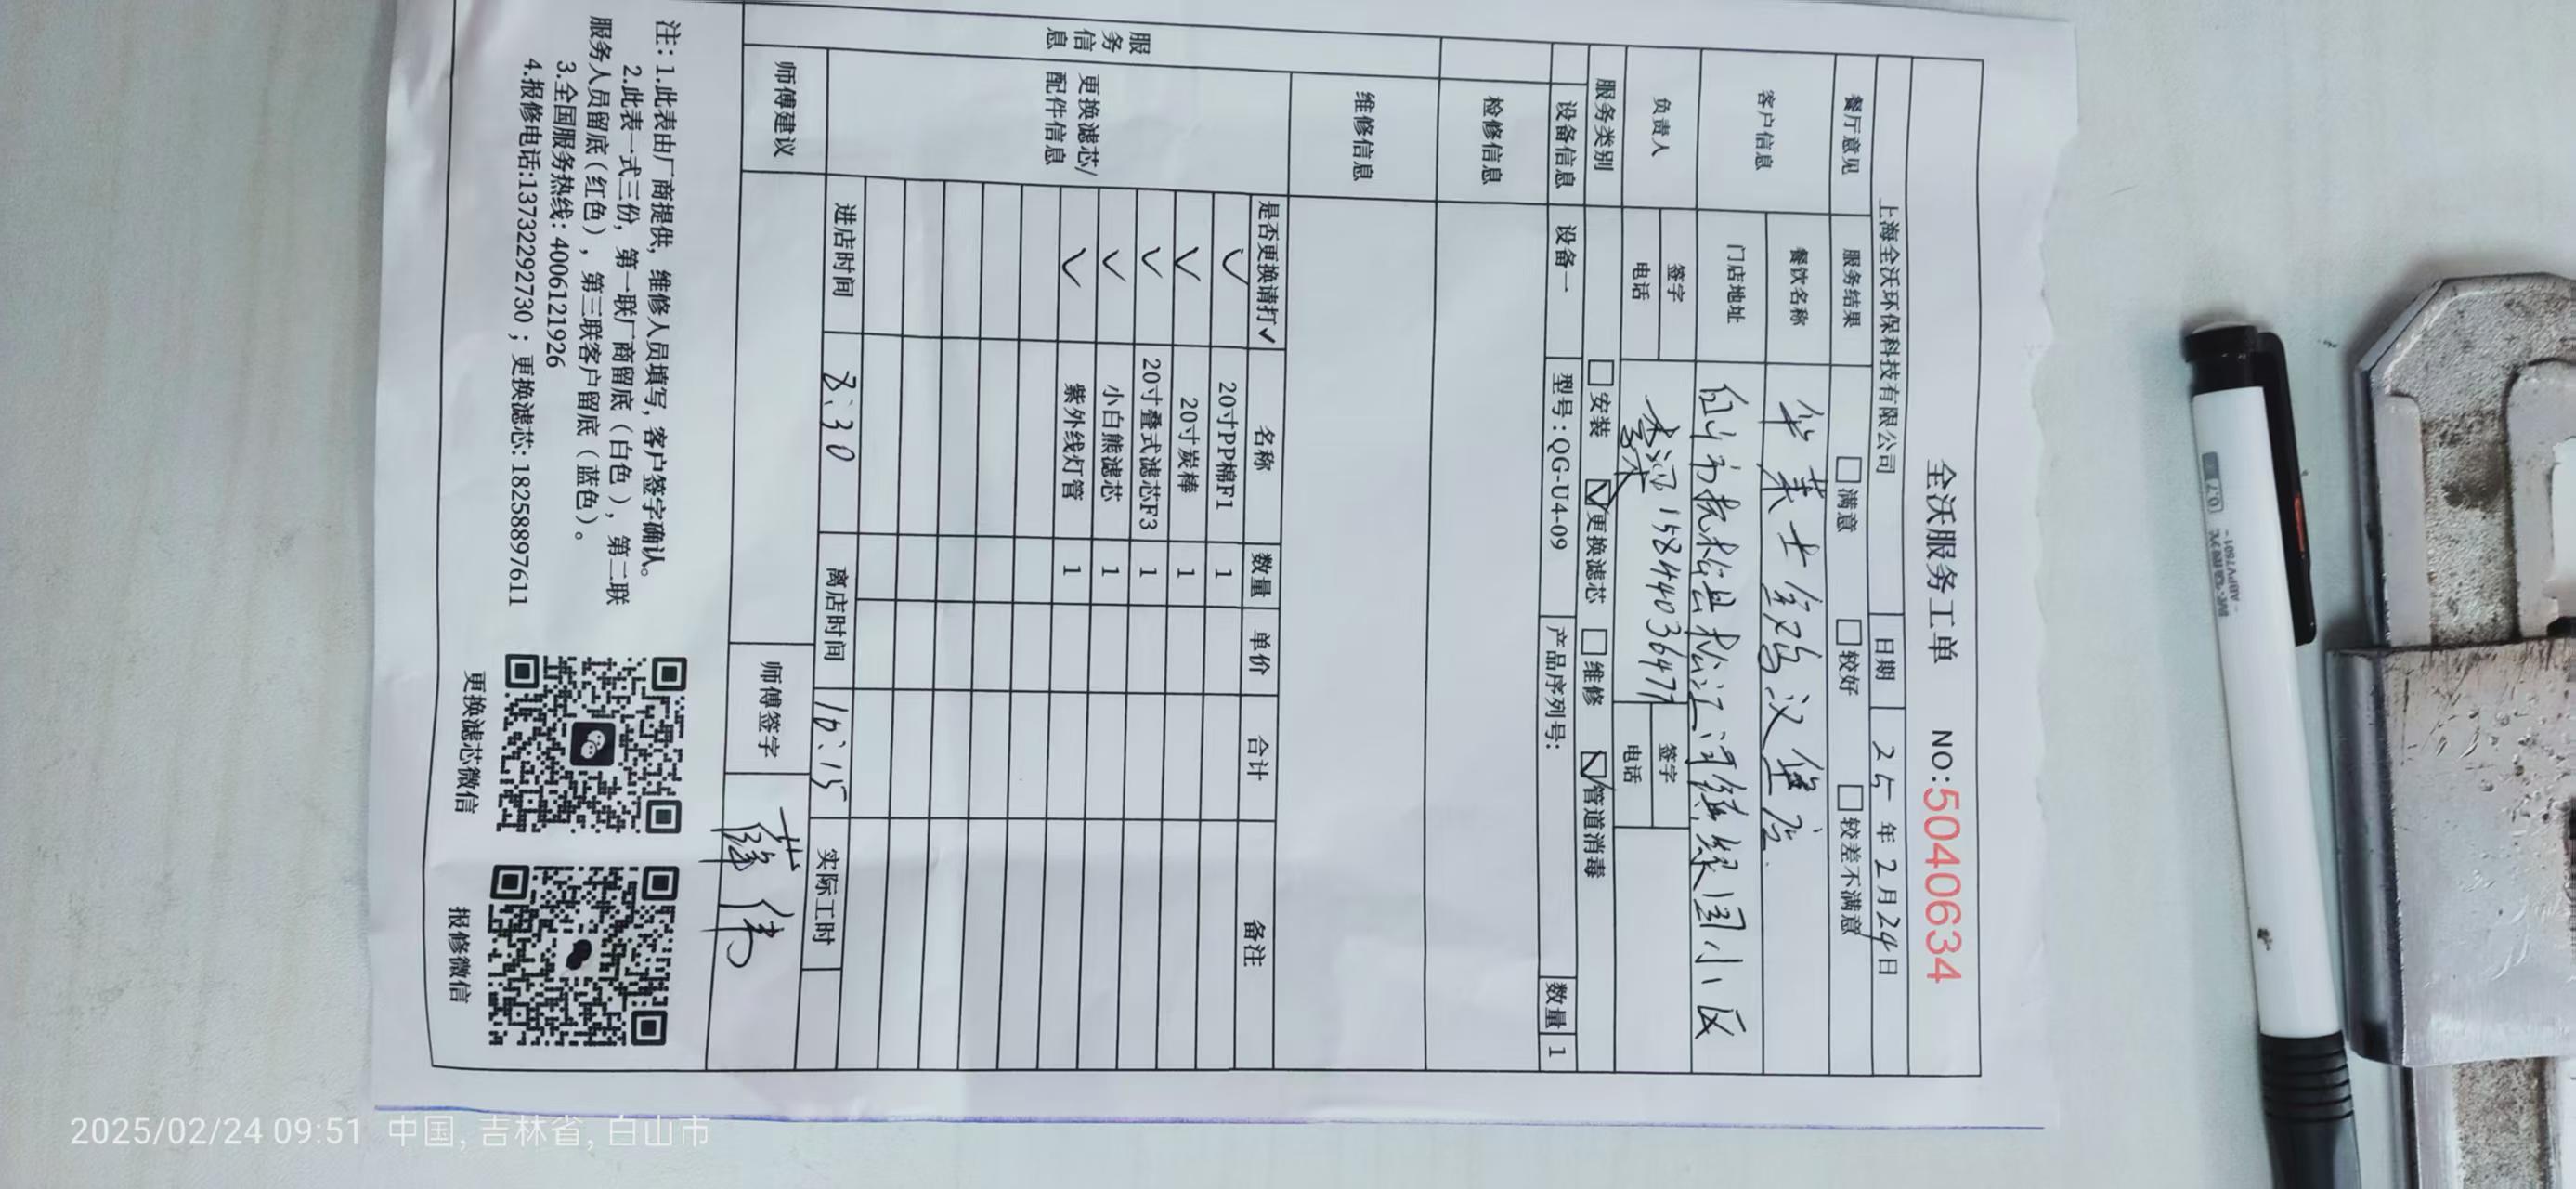 全沃服务工单 NO:5040634
上海全沃环保科技有限公司 日期 25年2月24日
餐厅意见 服务结果 □满意 □较好 □较差不满意
客户信息 餐饮名称 华莱士炸鸡汉堡店
门店地址 白山市抚松县松江河镇 小区
负责人 签字 电话 15844036471 签字 电话
服务类别 □安装 ☑更换滤芯 □维修 ☑管道消毒
设备信息 设备一 型号:QG-U4-09 产品序列号: 数量 1
服务信息
检修信息
维修信息
更换滤芯/配件信息
是否更换请打✓ 名称 数量 单价 合计 备注
✓ 20寸PP棉F1 1
✓ 20寸炭棒 1
✓ 20寸叠式滤芯F3 1
✓ 小白熊滤芯 1
✓ 紫外线灯管 1
进店时间 8:30 离店时间 10:15 实际工时
师傅建议 师傅签字
注: 1.此表由厂商提供, 维修人员填写, 客户签字确认。
2.此表一式三份, 第一联厂商留底 (白色) , 第二联
服务人员留底 (红色) , 第三联客户留底 (蓝色) 。
3.全国服务热线: 4006121926
4.报修电话:13732292730 ; 更换滤芯: 18258897611
更换滤芯微信 报修微信
2025/02/24 09:51 中国, 吉林省, 白山市